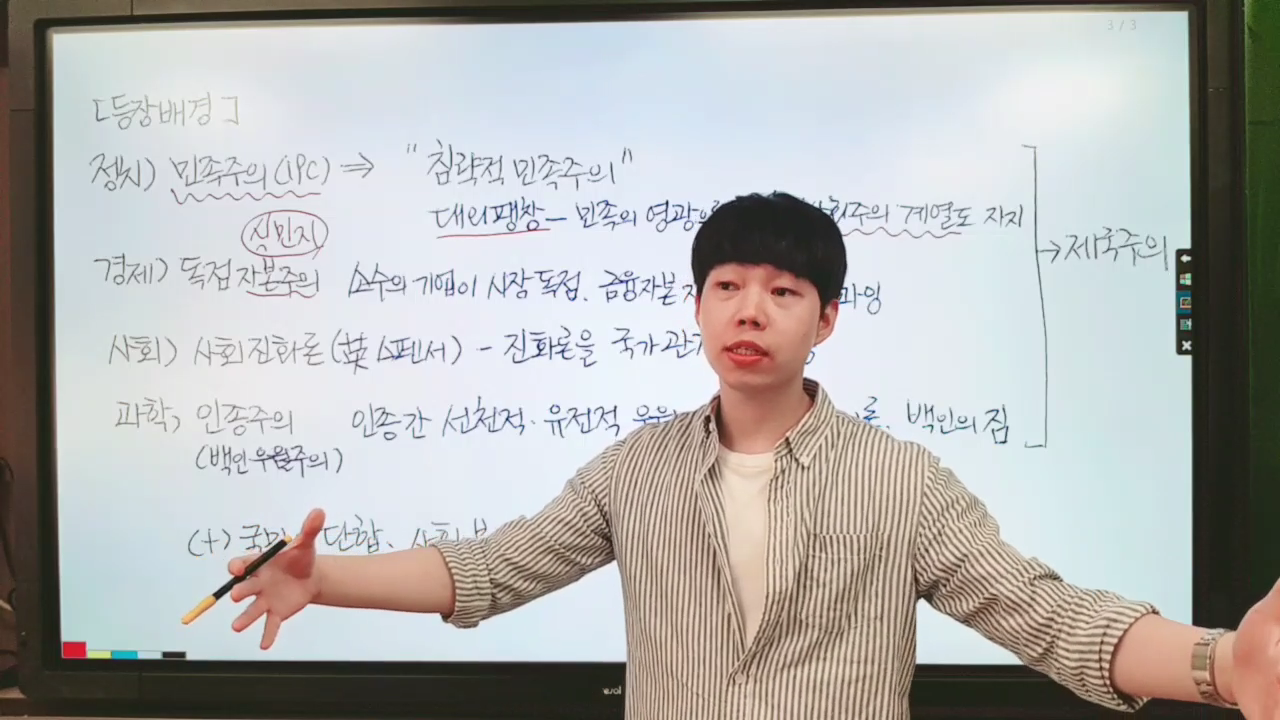 3 / 3
[등장배경]
정치) 민족주의(19C) ⇒ "침략적 민족주의"
대외팽창 - 민족의 영광 사회주의 계열도 지지
식민지
경제) 독점 자본주의 소수의 기업이 시장 독점. 금융자본 과잉
→ 제국주의
사회) 사회진화론(英 스펜서) - 진화론을 국가
과학) 인종주의 인종간 선천적·유전적 백인의 짐
(백인우월주의)
(+) 단합.